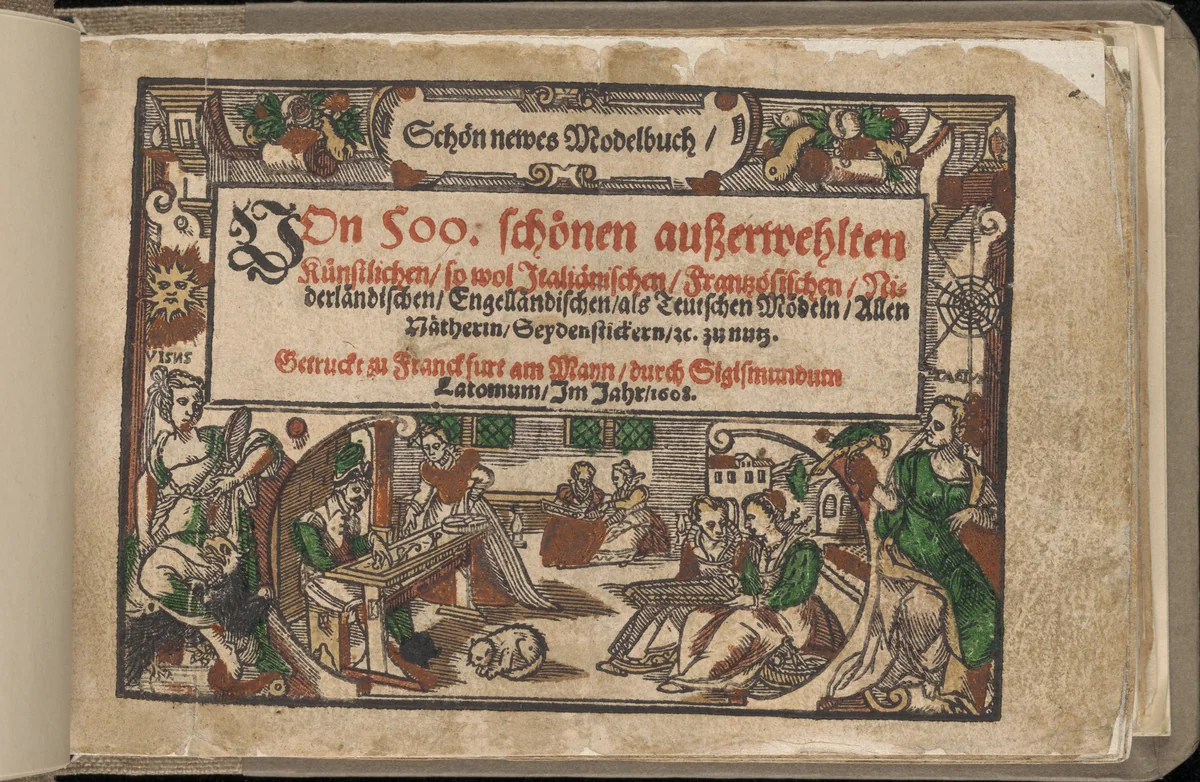 Schön newes Modelbuch /
VOn 500. schönen außerwehlten
Künstlichen / so wol Italiänischen / Frantzösischen / Ni-
derländischen / Engelländischen / als Teutschen Mödeln / Allen
Nätherin / Seydenstickern / ꝛc. zu nutz.
Getruckt zu Franckfurt am Mayn / durch Sigismundum
Latomum / Im Jahr / 1608.
VISUS
TACT